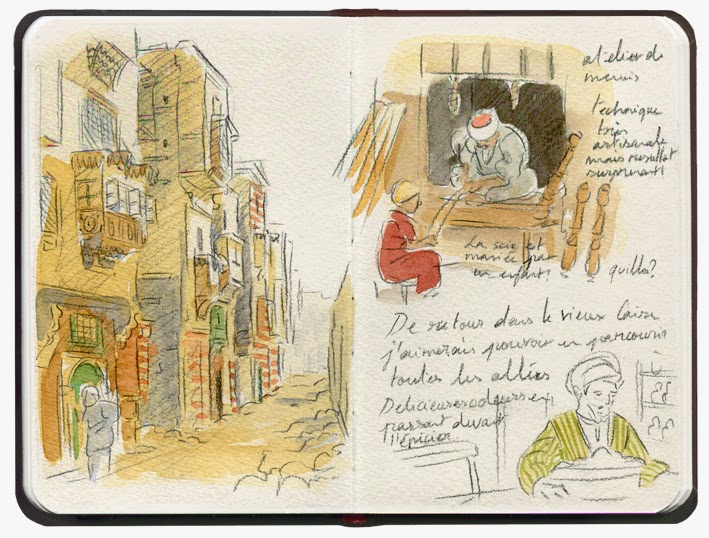 atelier de
menuis
technique
très
artisanale
mais résultat
surprenant!
La scie est
maniée par
un enfant!
quilles?
De retour dans le vieux Caire
j'aimerais pouvoir en parcourir
toutes les allées
Délicieuses odeurs en
passant devant
l'épicier